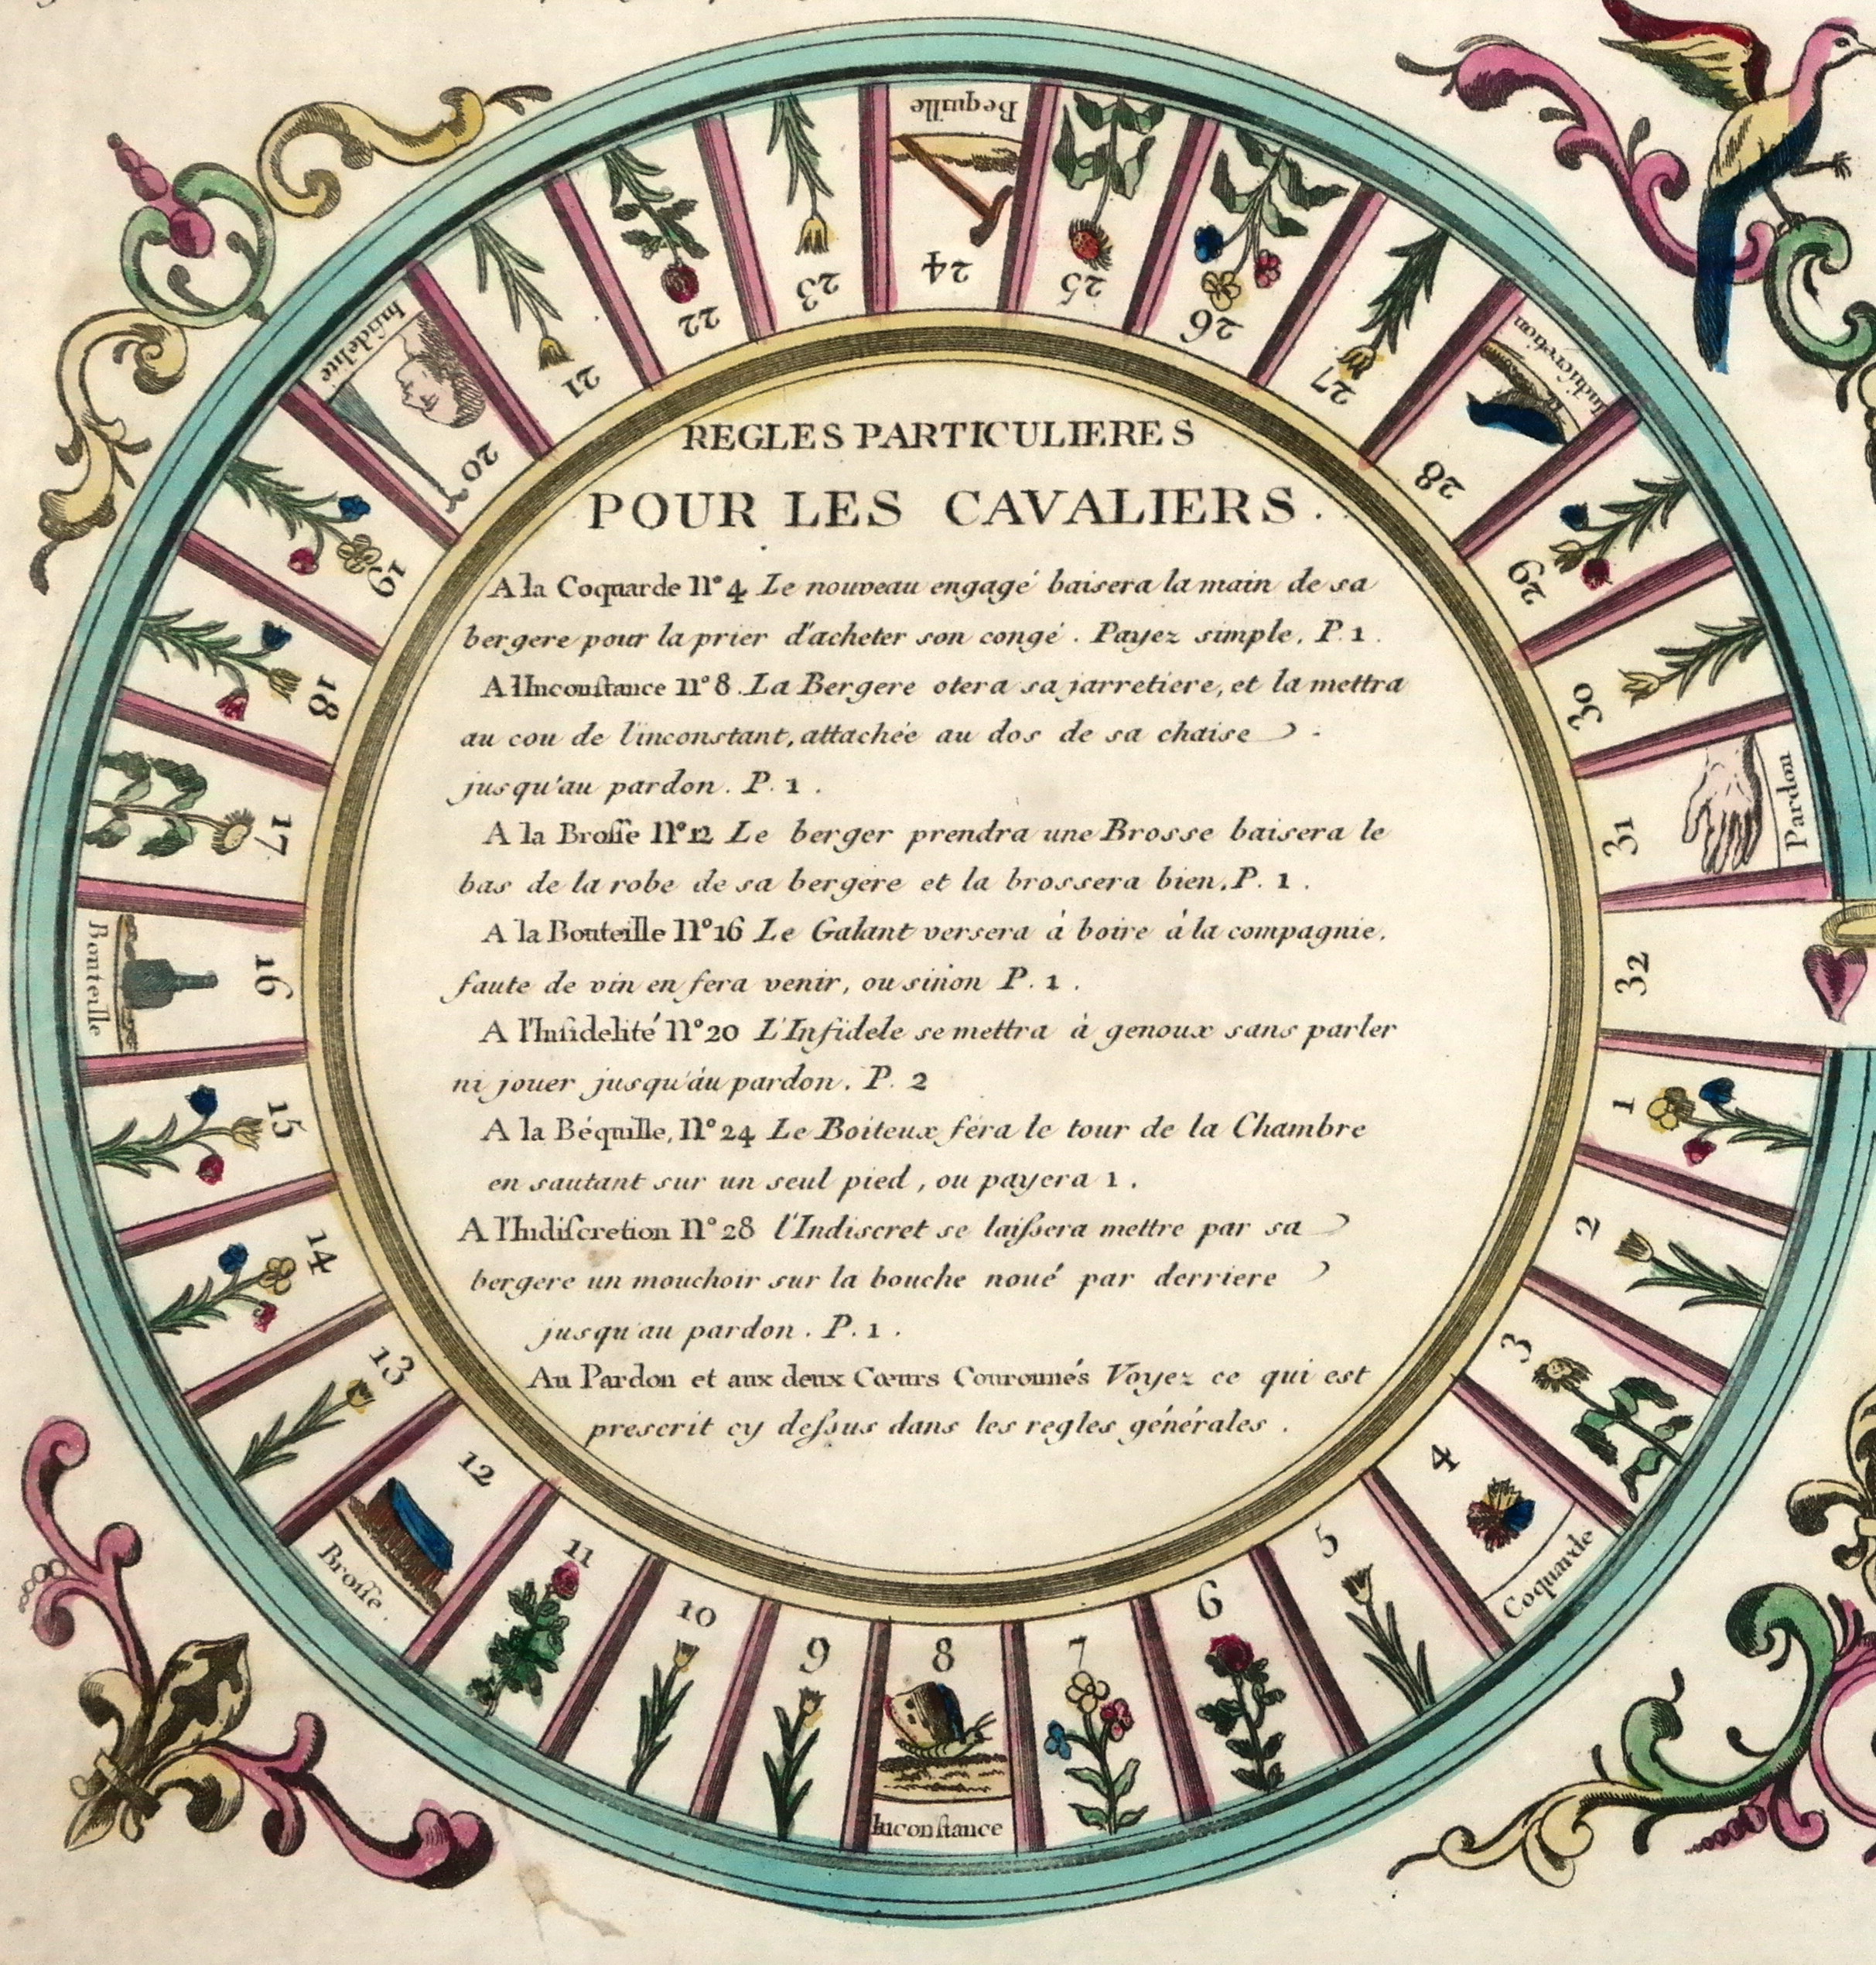 REGLES PARTICULIERES
POUR LES CAVALIERS.
A la Coquarde N° 4 Le nouveau engagé baisera la main de sa
bergere pour la prier d'acheter son congé. Payez simple, P. 1.
A l'Inconstance n° 8. La Bergere otera sa jarretiere, et la mettra
au cou de l'inconstant, attachée au dos de sa chaise
jusqu'au pardon. P. 1.
A la Brosse N° 12 Le berger prendra une Brosse baisera le
bas de la robe de sa bergere et la brossera bien. P. 1.
A la Bouteille N° 16 Le Galant versera à boire à la compagnie,
faute de vin en fera venir, ou sinon P. 1.
A l'Infidelité N° 20 L'Infidele se mettra à genoux sans parler
ni jouer jusqu'au pardon. P. 2
A la Béquille, N° 24 Le Boiteux fera le tour de la Chambre
en sautant sur un seul pied, ou payera 1.
A l'Indiscretion N° 28 l'Indiscret se laissera mettre par sa
bergere un mouchoir sur la bouche noué par derriere
jusqu'au pardon. P. 1.
Au Pardon et aux deux Cœurs Couronnés Voyez ce qui est
prescrit cy dessus dans les regles générales.
1
2
3
4
Coquarde
5
6
7
8
Inconstance
9
10
11
12
Brosse.
13
14
15
16
Bouteille
17
18
19
20
Infidelité
21
22
23
24
Bequille
25
26
27
28
Indiscretion
29
30
31
Pardon
32